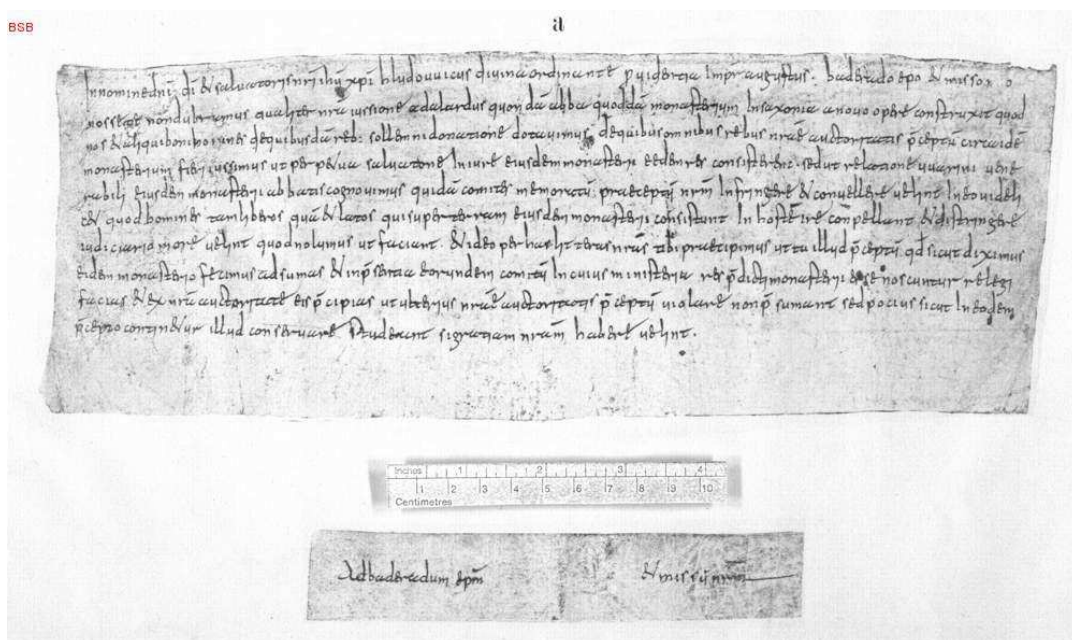 BSB
a
In nomine dn̄i dī & salvatoris nr̄i ihū xp̄i hludovuicus divina ordinante p̄videntia imp̄r augustus. baderado ep̄o & misso
nosse te non dubitamus qualiter nr̄a iussione adalardus quondā abba quoddā monasterium In saxonia a novo opere construxit quod
nos & aliqui boni homines de quibusdā reb: sollemni donatione dotavimus de quibus omnibus rebus nr̄ae auctoritatis p̄ceptū circa idē
monasterium fieri iussimus ut perpetua salvatione In iure eiusdem monasterii eedem res consisterent. sed ut relatione vuarini vene
rabili eiusdem monasterii abbatis cognovimus quidā comites memoratū praeceptū nr̄m Infringere & convellere velint In eo videli
c& quod homines tam liberos quā & latos qui super terram eiusdem monasterii consistunt In hostē ire conpellant & distringere
iudiciario more velint quod nolumus ut faciant. & ideo per has litteras nr̄as tibi praecipimus ut tu illud p̄ceptū qd sicut diximus
eidem monasterio fecimus adsumas & in p̄sentia eorundem comitū In cuius ministeria res p̄dicti monasterii esse noscuntur relegi
facias & ex nr̄a auctoritate eis p̄cipias ut ulterius nr̄ae auctoritatis p̄ceptū violare non p̄sumant sed pocius sicut In eodem
p̄cepto contin&ur illud conservare studeant si gratiam nr̄am habere velint.
Inches 1 2 3 4
1 2 3 4 5 6 7 8 9 10
Centimetres
Ad baderadum ep̄m & missū nr̄m